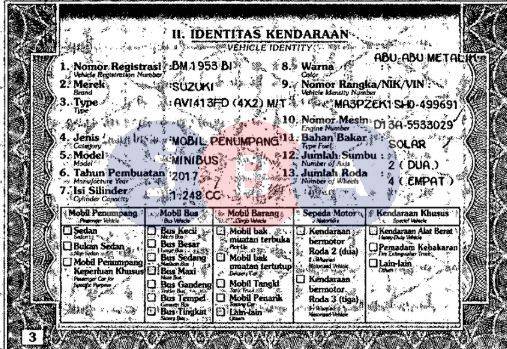 II. IDENTITAS KENDARAAN
VEHICLE IDENTITY
1. Nomor Registrasi : BM 1953 BI
Vehicle Registration Number
2. Merek : SUZUKI
Brand
3. Type : AVI413FD (4X2) M/T
Type
4. Jenis : MOBIL PENUMPANG
Category
5. Model : MINIBUS
Model
6. Tahun Pembuatan : 2017
Manufacture Year
7. Isi Silinder : 1.248 CC
Cylinder Capacity
8. Warna : ABU-ABU METALIK
Color
9. Nomor Rangka/NIK/VIN :
Vehicle Identity Number
MA3PZEK1SH0-499691
10. Nomor Mesin : D13A-5533029
Engine Number
11. Bahan Bakar : SOLAR
Type Fuel
12. Jumlah Sumbu : 2 (DUA)
Number of Axis
13. Jumlah Roda : 4 (EMPAT)
Number of Wheels
SBA
Mobil Penumpang
Passenger Vehicle
Sedan
Bukan Sedan
Mobil Penumpang
Keperluan Khusus
Mobil Bus
Bus Vehicle
Bus Kecil
Bus Besar
Bus Sedang
Bus Maxi
Bus Gandeng
Bus Tempel
Bus Tingkat
Mobil Barang
Cargo Vehicle
Mobil bak
muatan terbuka
Mobil bak
muatan tertutup
Mobil Tangki
Mobil Penarik
Lain-lain
Sepeda Motor
Kendaraan
bermotor
Roda 2 (dua)
Kendaraan
bermotor
Roda 3 (tiga)
Kendaraan Khusus
Special Vehicle
Kendaraan Alat Berat
Pemadam Kebakaran
Lain-lain
3